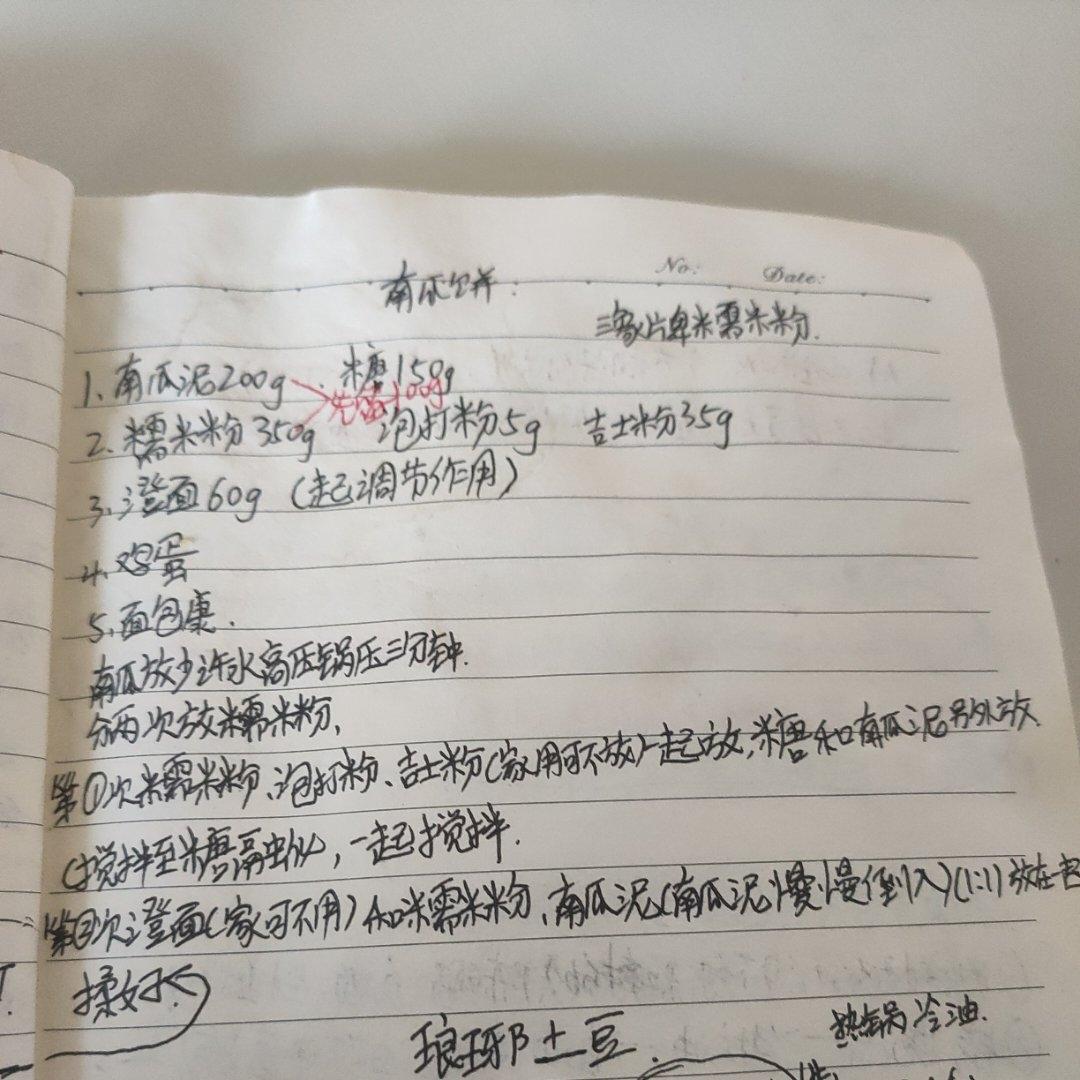 No: Date:
南瓜饼:
三象牌米需米粉.
1. 南瓜泥200g 糖150g
先留100g
2. 糯米粉350g 泡打粉5g 吉士粉35g
3. 澄面60g (起调节作用)
4. 鸡蛋
5. 面包康.
南瓜放少许水高压锅压三分钟.
分两次放糯米粉,
第①次糯米粉、泡打粉、吉士粉(家用可不放)一起放,糖和南瓜泥另外放
(搅拌至糖融化, 一起搅拌.
第②次澄面(家可不用)和糯米粉、南瓜泥(南瓜泥慢慢倒入)(1:1)放在一起
揉好
琅琊土豆.
热锅冷油.